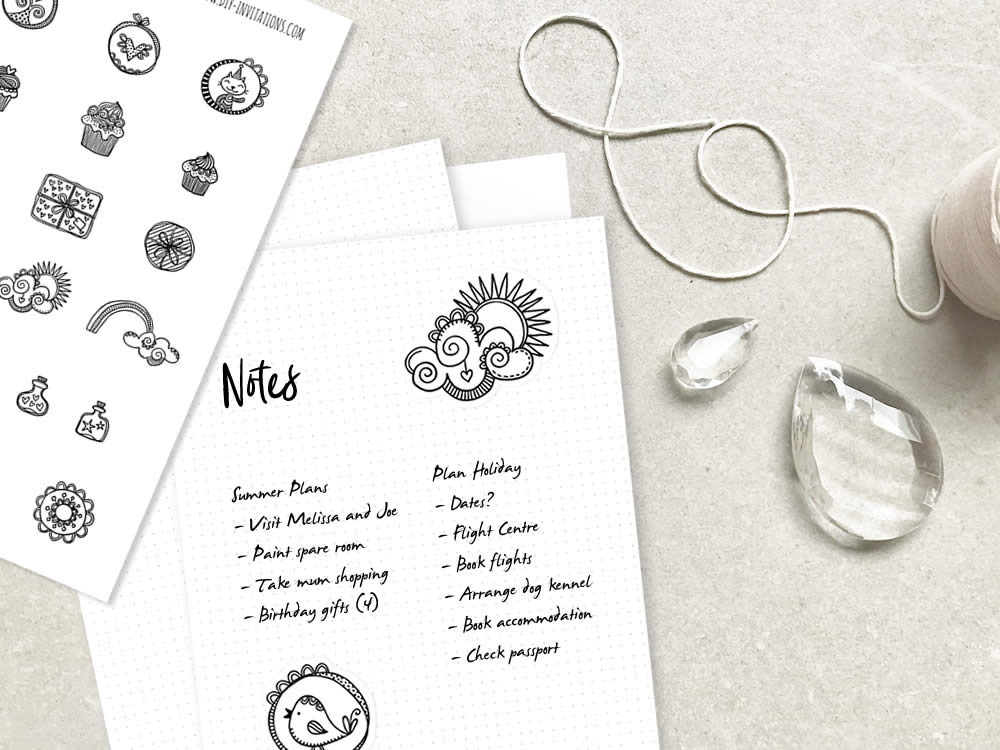 www.diy-invitations.com
Notes
Summer Plans
- Visit Melissa and Joe
- Paint spare room
- Take mum shopping
- Birthday gifts (4)
Plan Holiday
- Dates?
- Flight Centre
- Book flights
- Arrange dog kennel
- Book accommodation
- Check passport